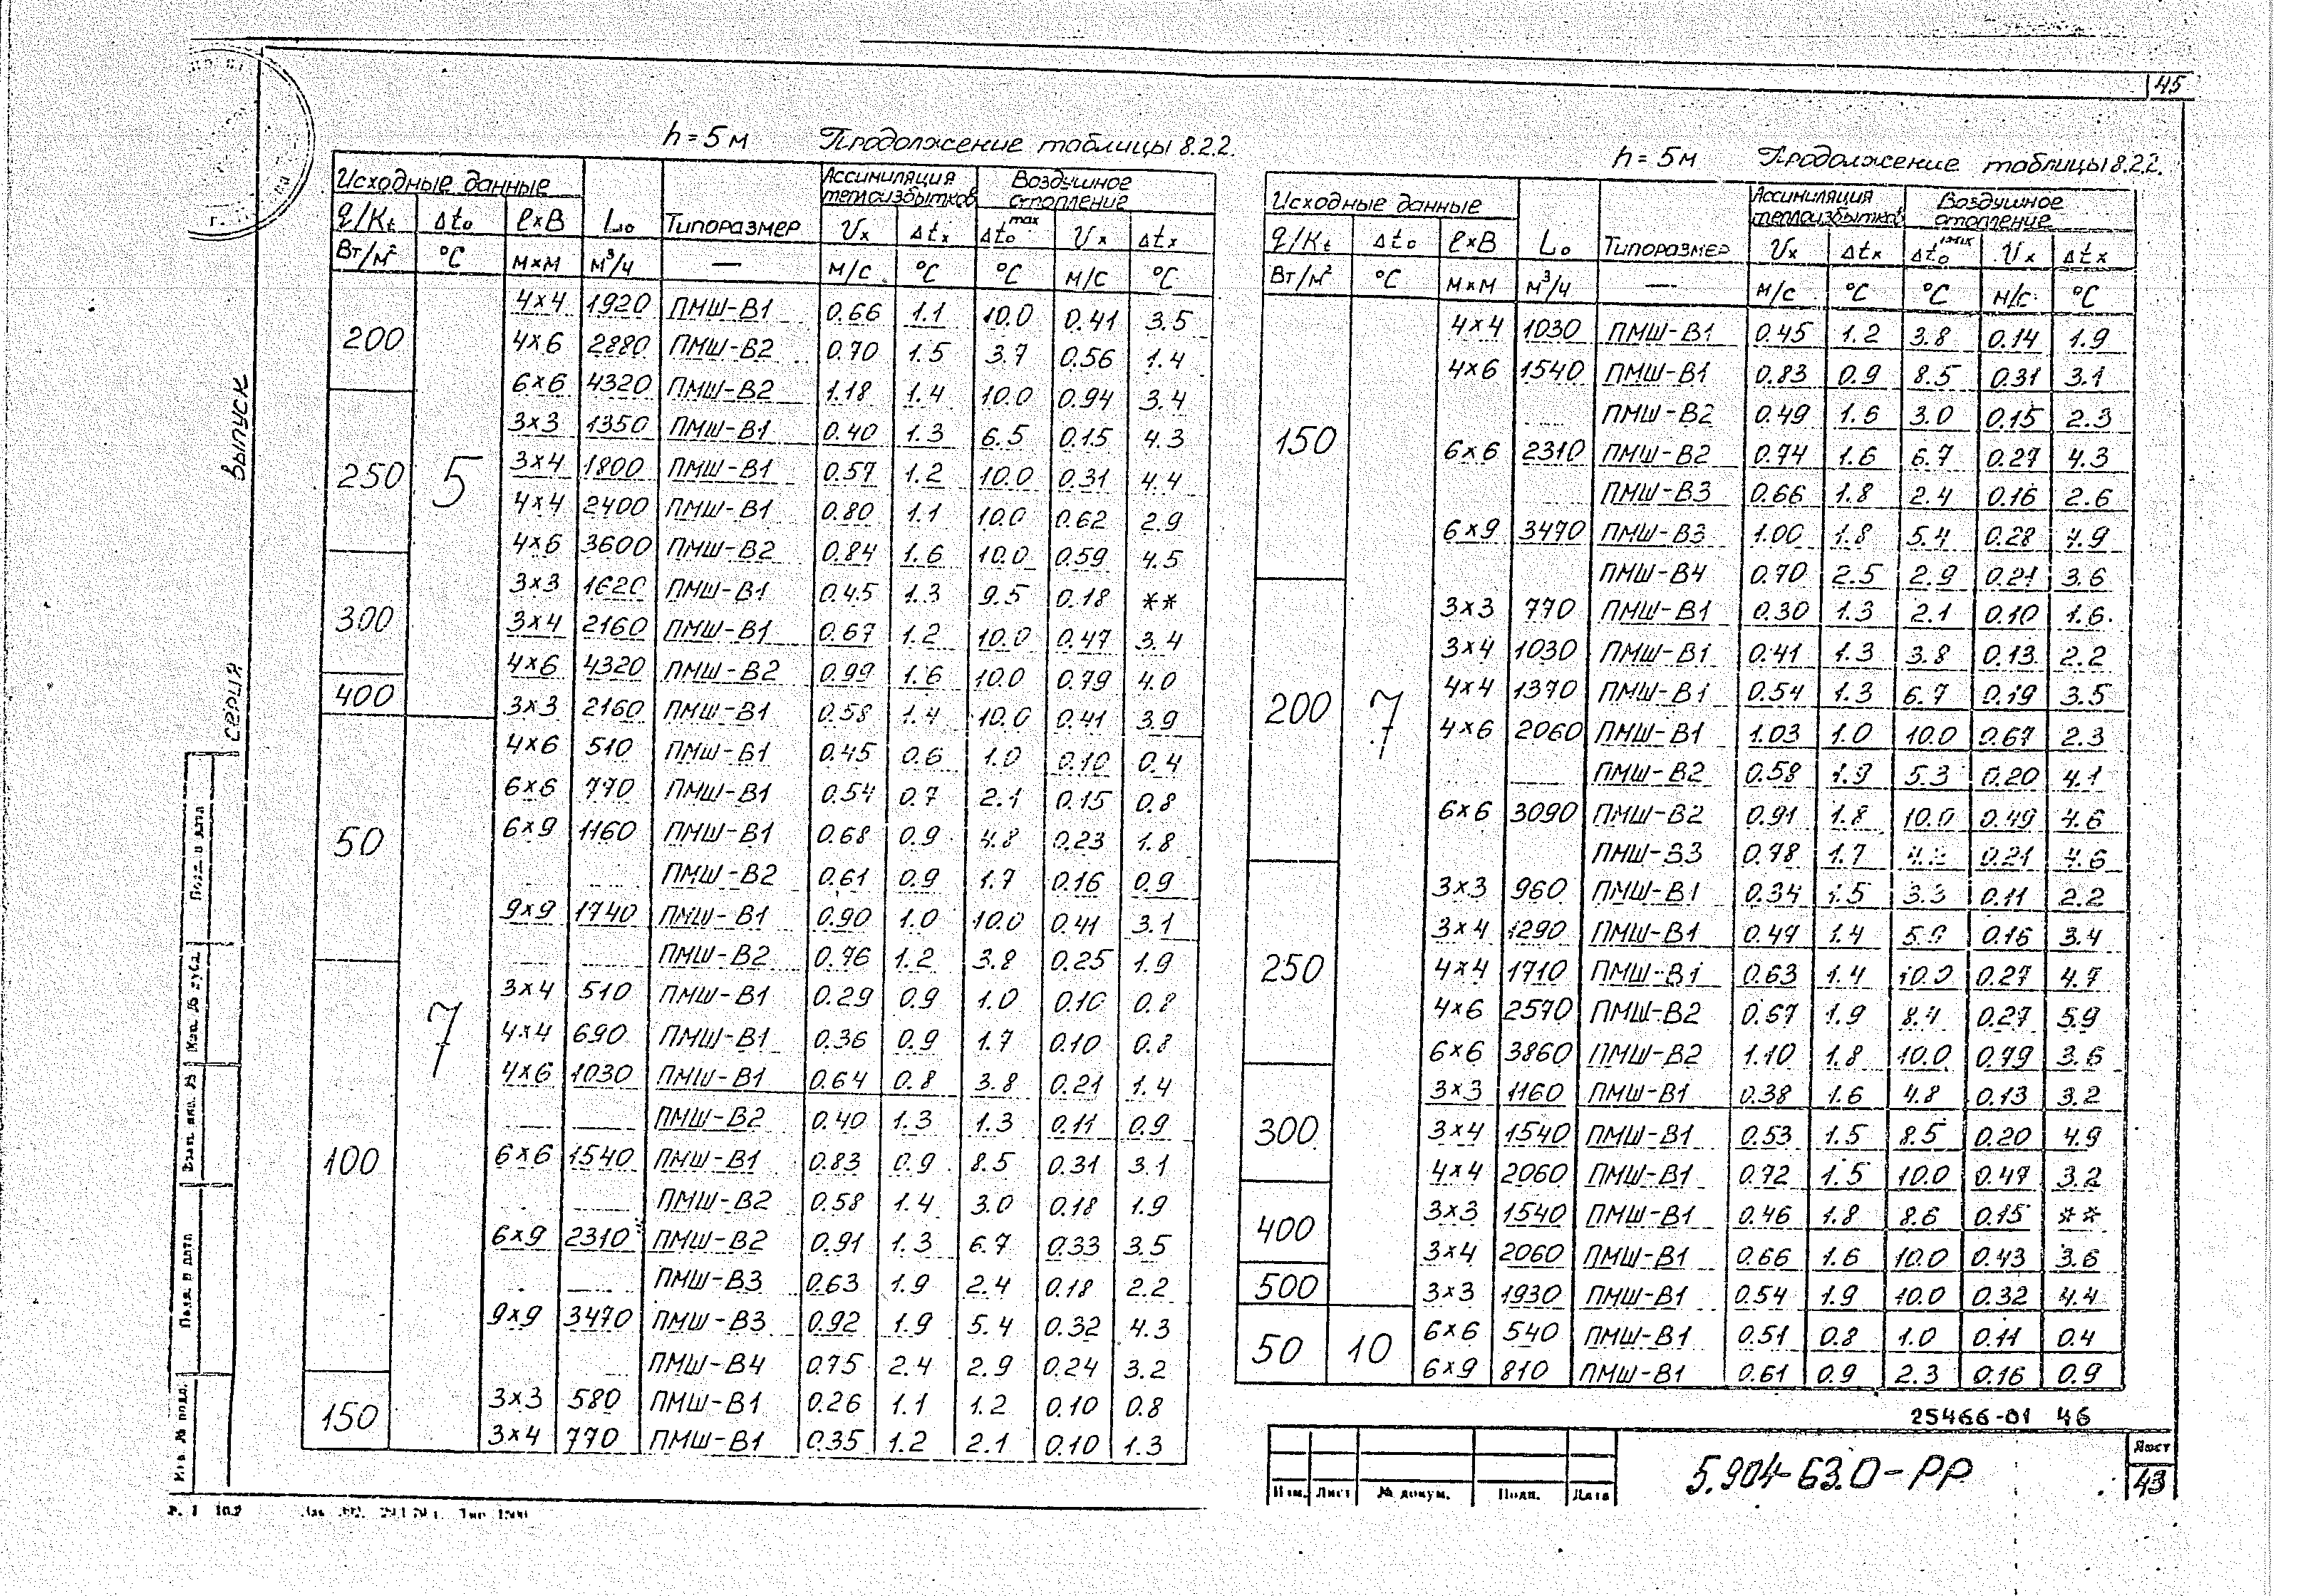 45
h = 5 м Продолжение таблицы 8.2.2.
Исходные данные L₀ Типоразмер Ассимиляция теплоизбытков Воздушное отопление
q/Kt Δt₀ l×B Vx Δtx Δt₀max Vx Δtx
Вт/м² °С м×м м³/ч — м/с °С °С м/с °С
200 5 4×4 1920 ПМШ-В1 0.66 1.1 10.0 0.41 3.5
4×6 2880 ПМШ-В2 0.70 1.5 3.7 0.56 1.4
6×6 4320 ПМШ-В2 1.18 1.4 10.0 0.94 3.4
250 3×3 1350 ПМШ-В1 0.40 1.3 6.5 0.15 4.3
3×4 1800 ПМШ-В1 0.57 1.2 10.0 0.31 4.4
4×4 2400 ПМШ-В1 0.80 1.1 10.0 0.62 2.9
4×6 3600 ПМШ-В2 0.84 1.6 10.0 0.59 4.5
300 3×3 1620 ПМШ-В1 0.45 1.3 9.5 0.18 **
3×4 2160 ПМШ-В1 0.67 1.2 10.0 0.47 3.4
4×6 4320 ПМШ-В2 0.99 1.6 10.0 0.79 4.0
400 3×3 2160 ПМШ-В1 0.58 1.4 10.0 0.41 3.9
50 7 4×6 510 ПМШ-В1 0.45 0.6 1.0 0.10 0.4
6×6 770 ПМШ-В1 0.54 0.7 2.1 0.15 0.8
6×9 1160 ПМШ-В1 0.68 0.9 4.8 0.23 1.8
ПМШ-В2 0.61 0.9 1.7 0.16 0.9
9×9 1740 ПМШ-В1 0.90 1.0 10.0 0.41 3.1
ПМШ-В2 0.76 1.2 3.8 0.25 1.9
100 3×4 510 ПМШ-В1 0.29 0.9 1.0 0.10 0.8
4×4 690 ПМШ-В1 0.36 0.9 1.7 0.10 0.8
4×6 1030 ПМШ-В1 0.64 0.8 3.8 0.21 1.4
ПМШ-В2 0.40 1.3 1.3 0.11 0.9
6×6 1540 ПМШ-В1 0.83 0.9 8.5 0.31 3.1
ПМШ-В2 0.58 1.4 3.0 0.18 1.9
6×9 2310 ПМШ-В2 0.91 1.3 6.7 0.33 3.5
ПМШ-В3 0.63 1.9 2.4 0.18 2.2
9×9 3470 ПМШ-В3 0.92 1.9 5.4 0.32 4.3
ПМШ-В4 0.75 2.4 2.9 0.24 3.2
150 3×3 580 ПМШ-В1 0.26 1.1 1.2 0.10 0.8
3×4 770 ПМШ-В1 0.35 1.2 2.1 0.10 1.3
h = 5м Продолжение таблицы 8.2.2.
Исходные данные L₀ Типоразмер Ассимиляция теплоизбытков Воздушное отопление
q/Kt Δt₀ l×B Vx Δtx Δt₀max Vx Δtx
Вт/м² °С м×м м³/ч — м/с °С °С м/с °С
150 7 4×4 1030 ПМШ-В1 0.45 1.2 3.8 0.14 1.9
4×6 1540 ПМШ-В1 0.83 0.9 8.5 0.31 3.1
ПМШ-В2 0.49 1.6 3.0 0.15 2.3
6×6 2310 ПМШ-В2 0.74 1.6 6.7 0.27 4.3
ПМШ-В3 0.66 1.8 2.4 0.16 2.6
6×9 3470 ПМШ-В3 1.00 1.8 5.4 0.28 4.9
ПМШ-В4 0.70 2.5 2.9 0.21 3.6
200 3×3 770 ПМШ-В1 0.30 1.3 2.1 0.10 1.6
3×4 1030 ПМШ-В1 0.41 1.3 3.8 0.13 2.2
4×4 1370 ПМШ-В1 0.54 1.3 6.7 0.19 3.5
4×6 2060 ПМШ-В1 1.03 1.0 10.0 0.67 2.3
ПМШ-В2 0.58 1.9 5.3 0.20 4.1
6×6 3090 ПМШ-В2 0.91 1.8 10.0 0.49 4.6
ПМШ-В3 0.78 1.7 0.21 4.6
250 3×3 960 ПМШ-В1 0.34 1.5 3.3 0.11 2.2
3×4 1290 ПМШ-В1 0.47 1.4 0.16 3.4
4×4 1710 ПМШ-В1 0.63 1.4 10.0 0.27 4.7
4×6 2570 ПМШ-В2 0.67 1.9 8.4 0.27 5.9
6×6 3860 ПМШ-В2 1.10 1.8 10.0 0.79 3.6
300 3×3 1160 ПМШ-В1 0.38 1.6 4.8 0.13 3.2
3×4 1540 ПМШ-В1 0.53 1.5 8.5 0.20 4.9
4×4 2060 ПМШ-В1 0.72 1.5 10.0 0.47 3.2
400 3×3 1540 ПМШ-В1 0.46 1.8 8.6 0.15 **
3×4 2060 ПМШ-В1 0.66 1.6 10.0 0.43 3.6
500 3×3 1930 ПМШ-В1 0.54 1.9 10.0 0.32 4.4
50 10 6×6 540 ПМШ-В1 0.51 0.8 1.0 0.11 0.4
6×9 810 ПМШ-В1 0.61 0.9 2.3 0.16 0.9
25466-01 46
Изм. Лист № докум. Подп. Дата
5.904-63.0-РР
Лист
43
выпуск
серия
Подп. и дата
Взам. инв. №
Подп. и дата
Инв. № подл.